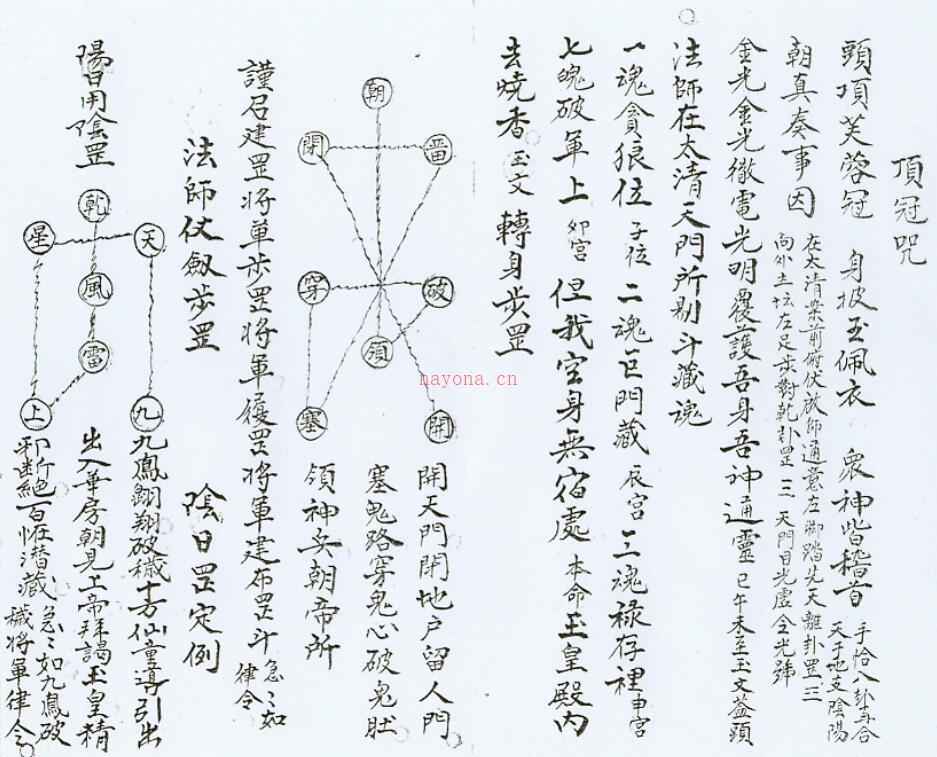 頂冠咒
頭頂芙蓉冠 身披玉佩衣 衆神皆稽首 手恰八卦再合天干地支陰陽
朝真奏事因 在太清案前俯伏放師通意左脚踏先天離卦罡三向外主坛左足步對乾卦罡三 天門日光處 令光歸
金光金光徹電光明覆護吾身吾神通靈 巳午未至玉文益頭
法師在太清天門所剔斗藏魂
一魂貪狼位 子位 二魂巨門藏 辰宮 三魂祿存裡 申宮
七魄破軍上 卯宮 但我空身無宿處 本命玉皇殿內
去燒香 玉文 轉身步罡
朝
閉 畄
穿 破
須
塞 開
開天門閉地戶留人門
塞鬼路穿鬼心破鬼肚
領神兵朝帝所
謹召建罡將軍步罡將軍履罡將軍建布罡斗 急〻如律令
法師仗劍步罡 陰日罡定例
陽日用陰罡
乾
星 天
風
雷
上 九
九鳳翺翔破穢十方仙童導引出
出入華房朝見上帝拜謁玉皇精
邪断絕百怪潛藏 急〻如九鳳破穢將軍律令
nayona.cn